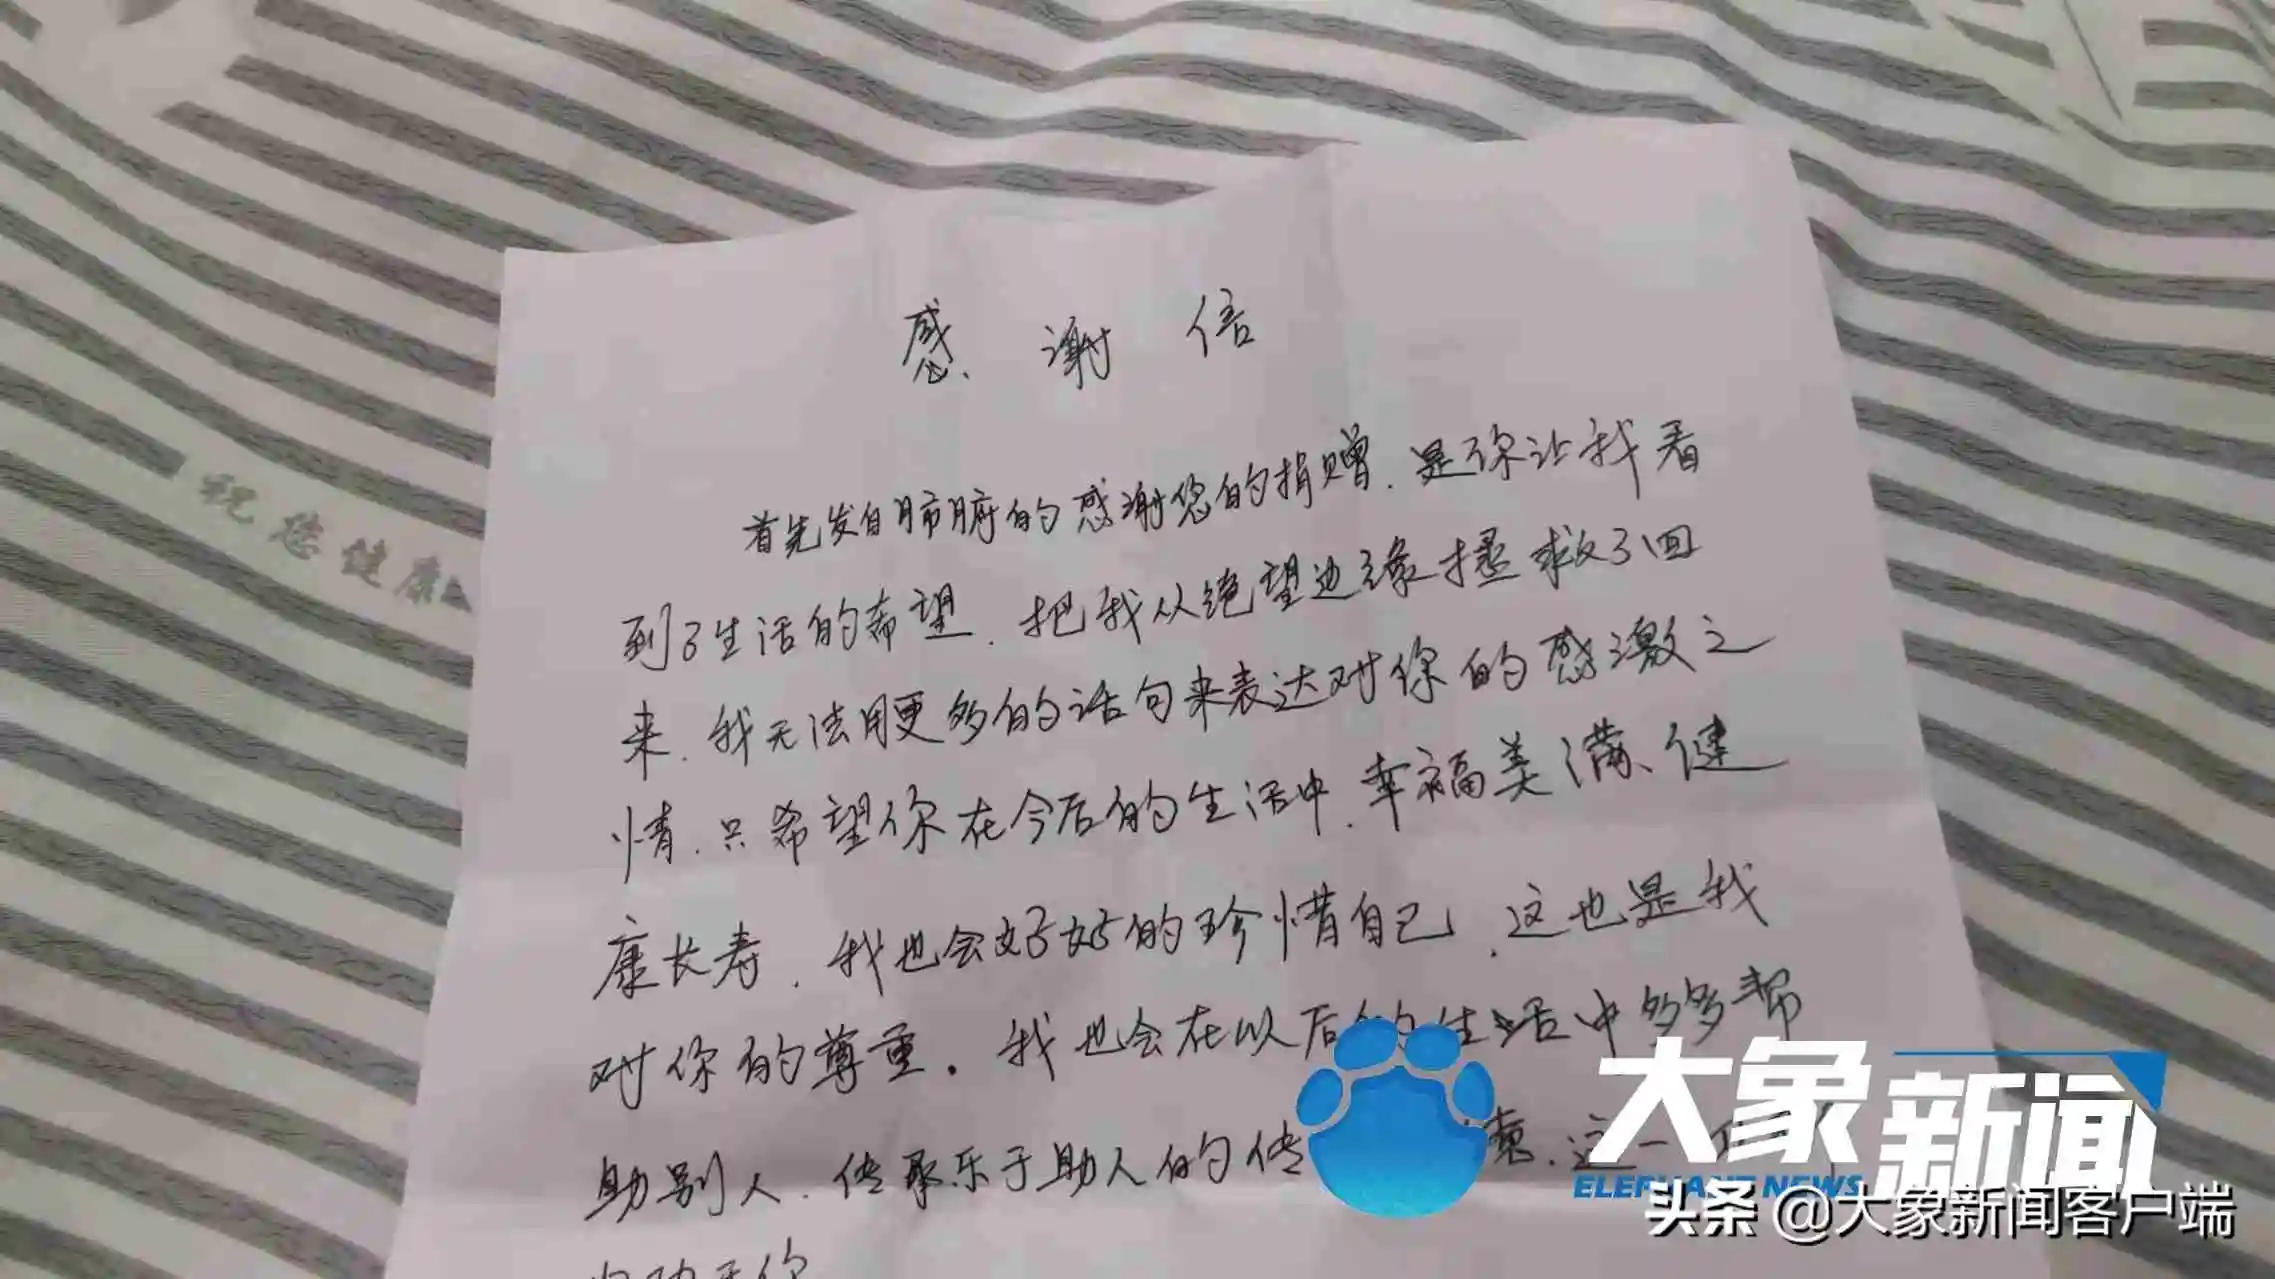 感谢信
首先发自肺腑的感谢您的捐赠.是你让我看
到了生活的希望.把我从绝望边缘拯救了回
来.我无法用更多的话句来表达对你的感激之
情.只希望你在今后的生活中.幸福美满、健
康长寿.我也会好好的珍惜自己.这也是我
对你的尊重.我也会在以后的生活中多多帮
助别人.传承乐于助人的传
祝您健康
大象新闻
ELEPHANT NEWS
头条 @大象新闻客户端